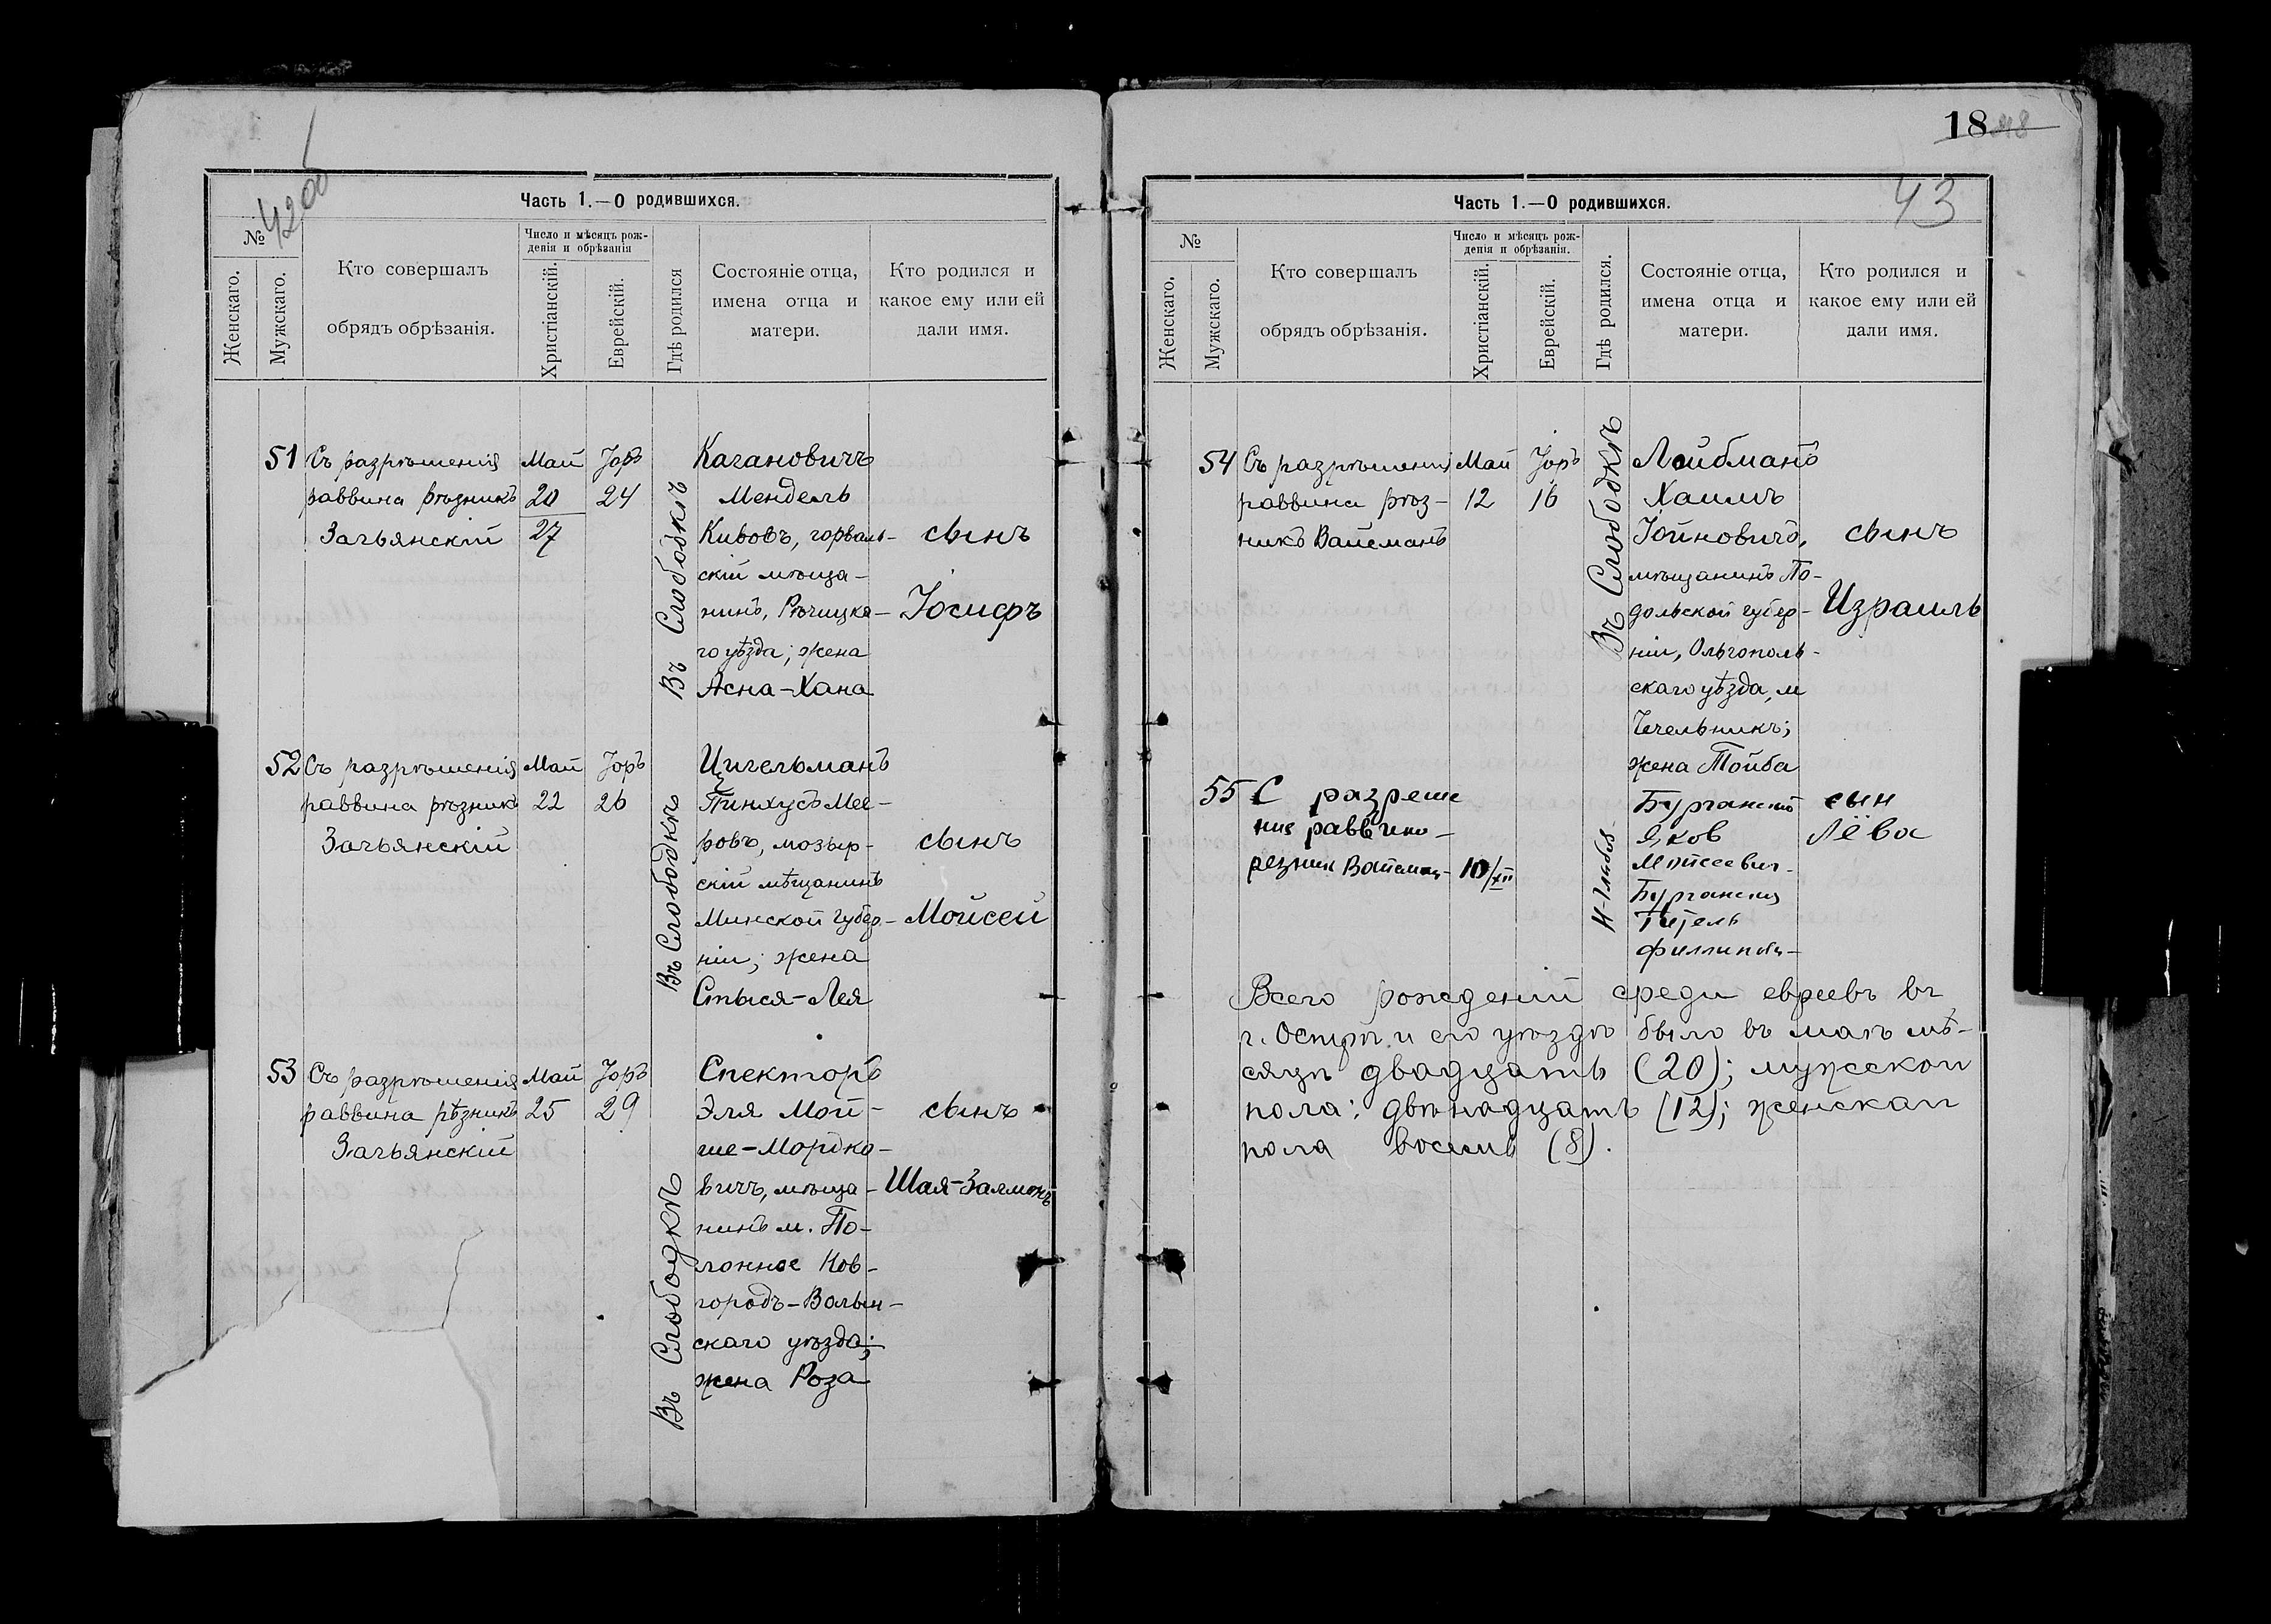 4200
Часть 1.—О родившихся.
№
Женскаго.
Мужскаго.
Кто совершалъ
обрядъ обрѣзанія.
Число и мѣсяцъ рож-
денія и обрѣзанія
Христіанскій.
Еврейскій.
Гдѣ родился
Состояніе отца,
имена отца и
матери.
Кто родился и
какое ему или ей
дали имя.
51
Съ разрѣшенія
раввина рѣзникъ
Загьянскій
Май
20
27
Іоръ
24
Въ Слободкѣ
Кагановичъ
Мендель
Кивовъ, горваль-
скій мѣща-
нинъ, Рѣчицка-
го уѣзда; жена
Асна-Хана
сынъ
Іосифъ
52
Съ разрѣшенія
раввина рѣзникъ
Загьянскій
Май
22
Іоръ
26
Въ Слободкѣ
Цигельманъ
Пинхусъ Мее-
ровъ, мозыр-
скій мѣщанинъ
Минской губер-
ніи; жена
Стыся-Лея
сынъ
Мойсей
53
Съ разрѣшенія
раввина рѣзникъ
Загьянскій
Май
25
Іоръ
29
Въ Слободкѣ
Спекторъ
Эля Мой-
ше-Мордко-
вичъ, мѣща-
нинъ м. По-
лонное Нов-
городъ-Волын-
скаго уѣзда;
жена Роза
сынъ
Шая-Залмонъ
18
43
Часть 1.—О родившихся.
№
Женскаго.
Мужскаго.
Кто совершалъ
обрядъ обрѣзанія.
Число и мѣсяцъ рож-
денія и обрѣзанія.
Христіанскій.
Еврейскій.
Гдѣ родился.
Состояніе отца,
имена отца и
матери.
Кто родился и
какое ему или ей
дали имя.
54
Съ разрѣшенія
раввина рѣз-
никъ Вайсманъ
Май
12
Іоръ
16
Въ Слободкѣ
Лойбманъ
Хаимъ
Іойновичъ,
мѣщанинъ По-
дольской губер-
ніи, Ольгополь-
скаго уѣзда, м
Чечельникъ;
жена Тойба
сынъ
Израиль
55
С разреше
ния раввина
резник Вайсман
10/XII
Бурганский
Яков
Бурганския
сын
Лёва
Всего рожденій среди евреевъ въ
г. Острѣ и его уѣздѣ было въ маѣ мѣ-
сяцѣ двадцать (20); мужской
пола: двѣнадцать (12); женскаи
пола восемь (8).